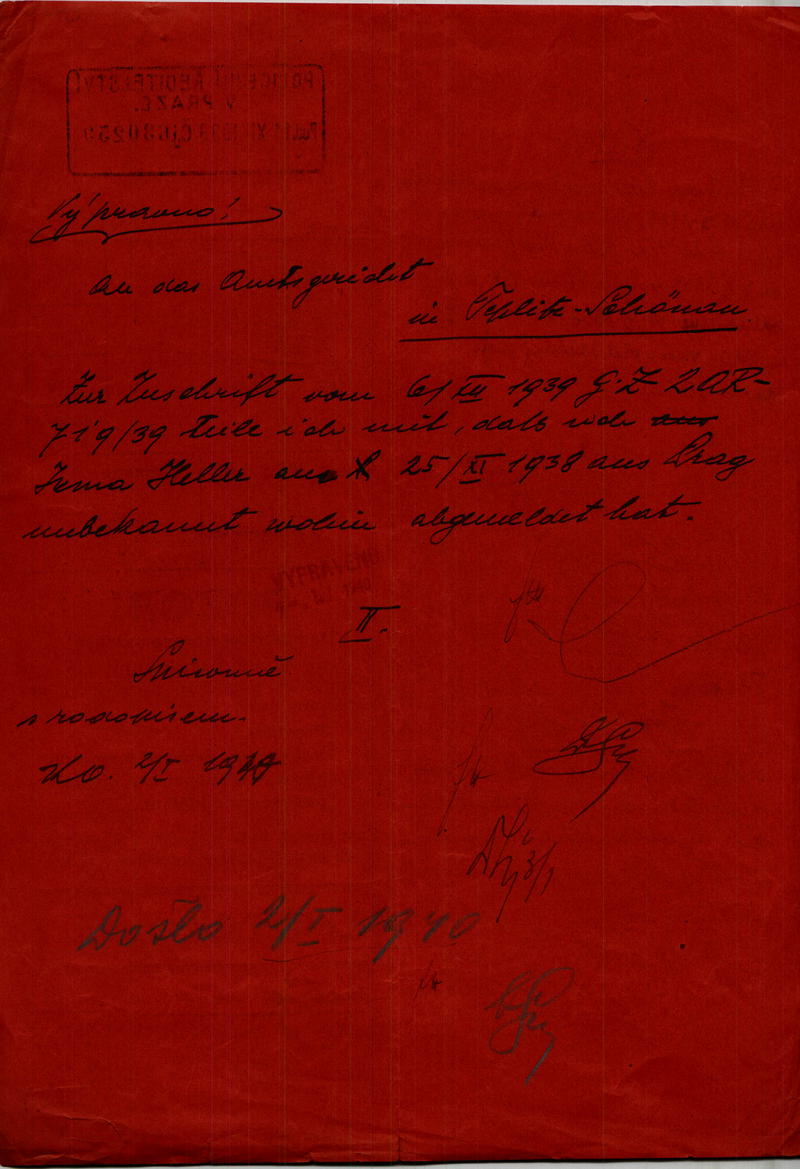 POLICEJNÍ ŘEDITELSTVÍ
V PRAZE.
Výpravno!
An das Amtsgericht
in Teplitz-Schönau
Zur Zuschrift vom 6/XII 1939 G.Z 2AR-
719/39 teile ich mit, dass sich aus
Irma Heller am 25/XI 1938 aus Prag
unbekannt wohin abgemeldet hat.
VYPRAVENO
1940
II.
2/I 1940
3/1
Došlo 2/I 1940